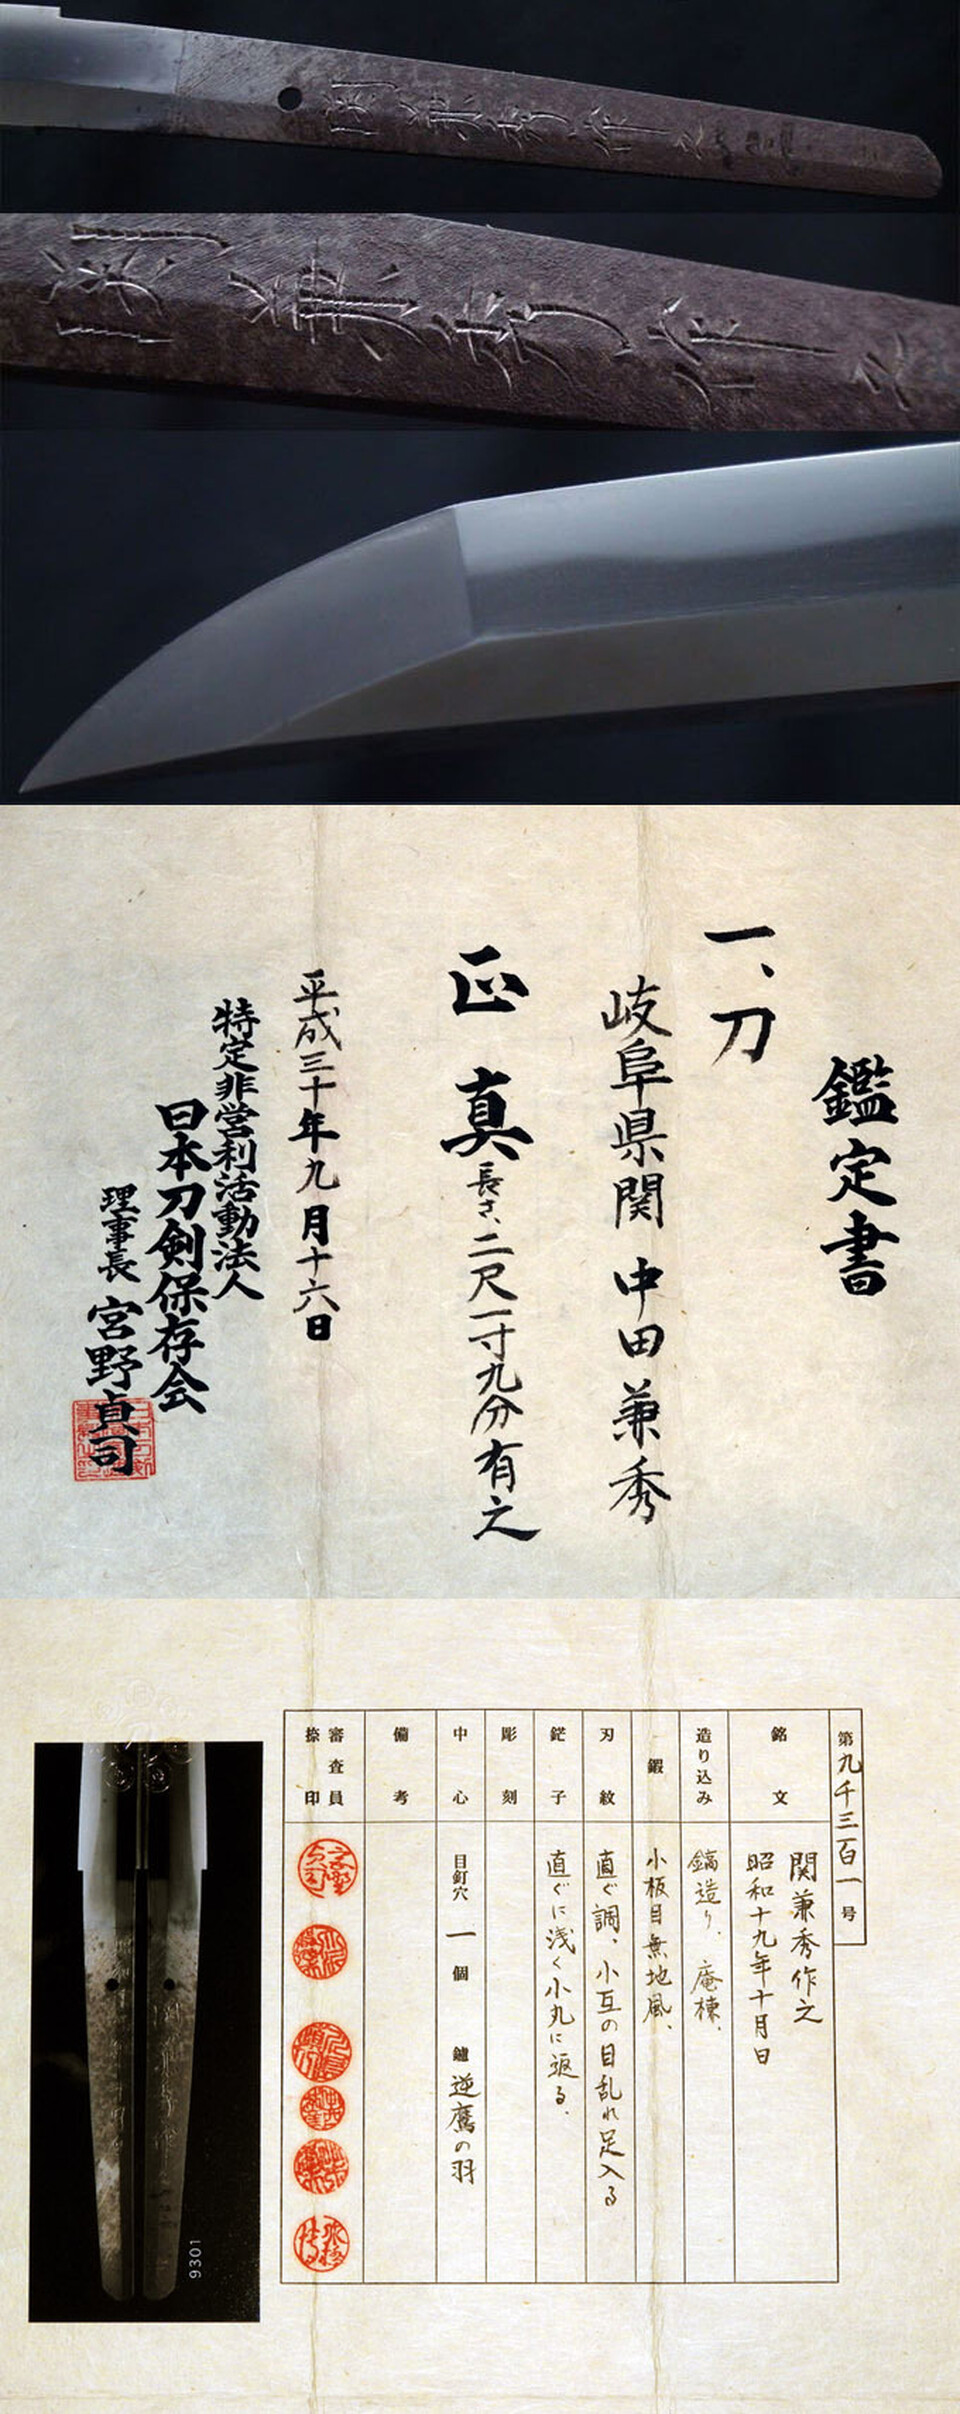 関兼秀作之
関兼秀作之
鑑定書
一、刀
岐阜県関 中田兼秀
正真 長さ、二尺一寸九分有之
平成三十年九月十六日
特定非営利活動法人
日本刀剣保存会
理事長 宮野貞司
第九千三百一号
銘文
関兼秀作之
昭和十九年十月日
造り込み
鎬造り、庵棟、
鍛
小板目無地風、
刃紋
直ぐ調、小互の目乱れ足入る
鋩子
直ぐに浅く小丸に返る、
彫刻
中心
目釘穴 一個 鑢 逆鷹の羽
備考
審査員
捺印
9301